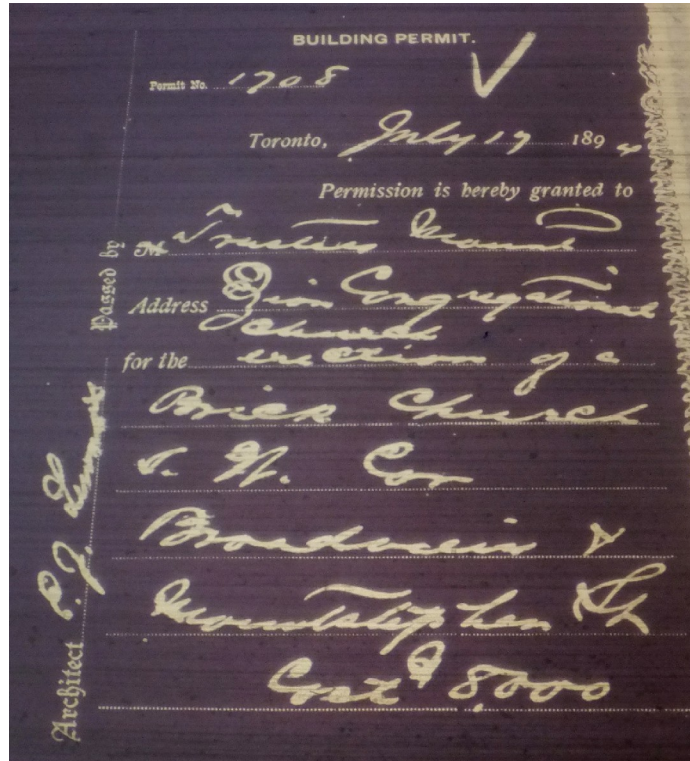 BUILDING PERMIT.
Permit No. 1708
Toronto, July 17 1894
Permission is hereby granted to
M Trustees Mount
Address Zion Congregational
Church
for the erection of a
Brick Church
S. W. Cor
Broadview &
Mountstephen St
Cost $ 8,000
Passed by
Architect E.J.